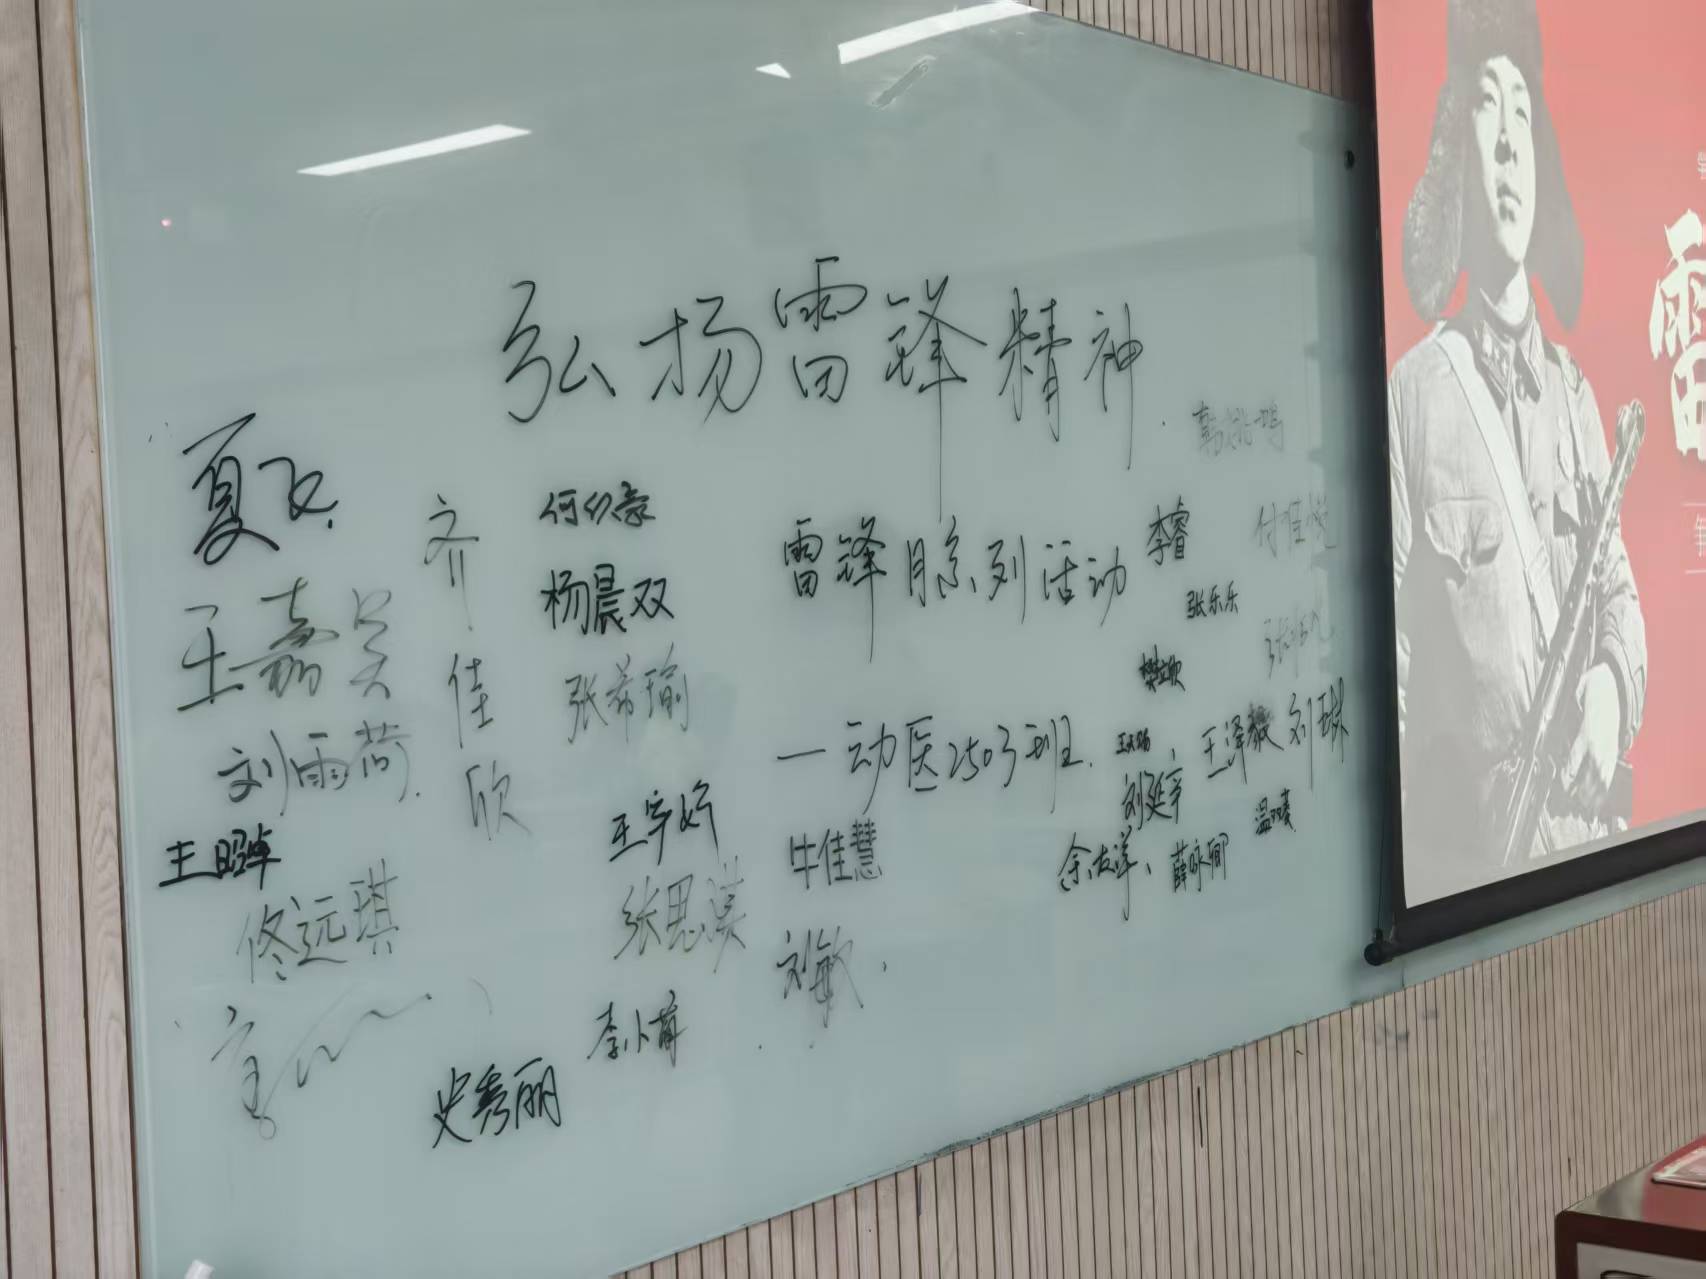 弘扬雷锋精神
雷锋月系列活动
一动医2503班
夏飞
齐佳欣
何幺豪
杨晨双
张希瑜
王嘉昊
刘雨荷
王昭卓
修远琪
史秀丽
王宇妍
张思淇
李小萌
牛佳慧
刘敏
李睿
付佳悦
张乐乐
樊立欣
王泽毅
刘琳
刘延宇
余友洋、薛咏卿
雷